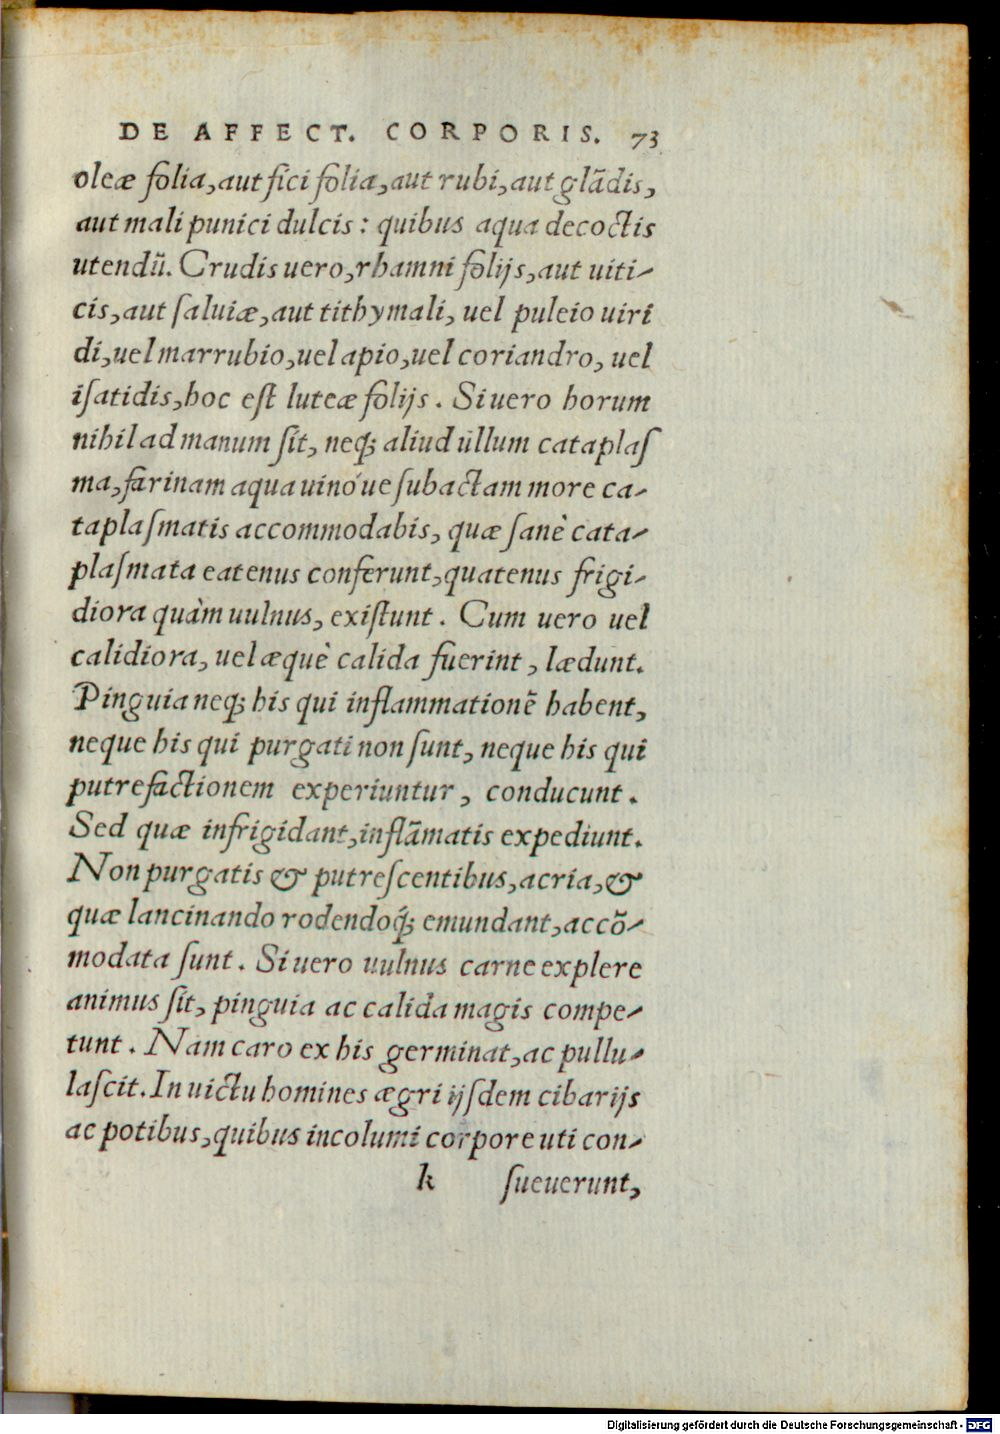 DE AFFECT. CORPORIS. 73
oleæ folia, aut fici folia, aut rubi, aut glãdis,
aut mali punici dulcis: quibus aqua decoctis
utendũ. Crudis uero, rhamni folijs, aut uiti-
cis, aut saluiæ, aut tithymali, uel puleio uiri
di, uel marrubio, uel apio, uel coriandro, uel
isatidis, hoc est luteæ folijs. Si uero horum
nihil ad manum sit, neq; aliud ullum cataplas
ma, farinam aqua uinóue subactam more ca-
taplasmatis accommodabis, quæ sanè cata-
plasmata eatenus conferunt, quatenus frigi-
diora quàm uulnus, existunt. Cum uero uel
calidiora, uel æquè calida fuerint, lædunt.
Pinguia neq; his qui inflammationẽ habent,
neque his qui purgati non sunt, neque his qui
putrefactionem experiuntur, conducunt.
Sed quæ infrigidant, inflãmatis expediunt.
Non purgatis & putrescentibus, acria, &
quæ lancinando rodendoq́; emundant, accõ-
modata sunt. Si uero uulnus carne explere
animus sit, pinguia ac calida magis compe-
tunt. Nam caro ex his germinat, ac pullu-
lascit. In uictu homines ægri ijsdem cibarijs
ac potibus, quibus incolumi corpore uti con-
k sueuerunt,
Digitalisierung gefördert durch die Deutsche Forschungsgemeinschaft - DFG